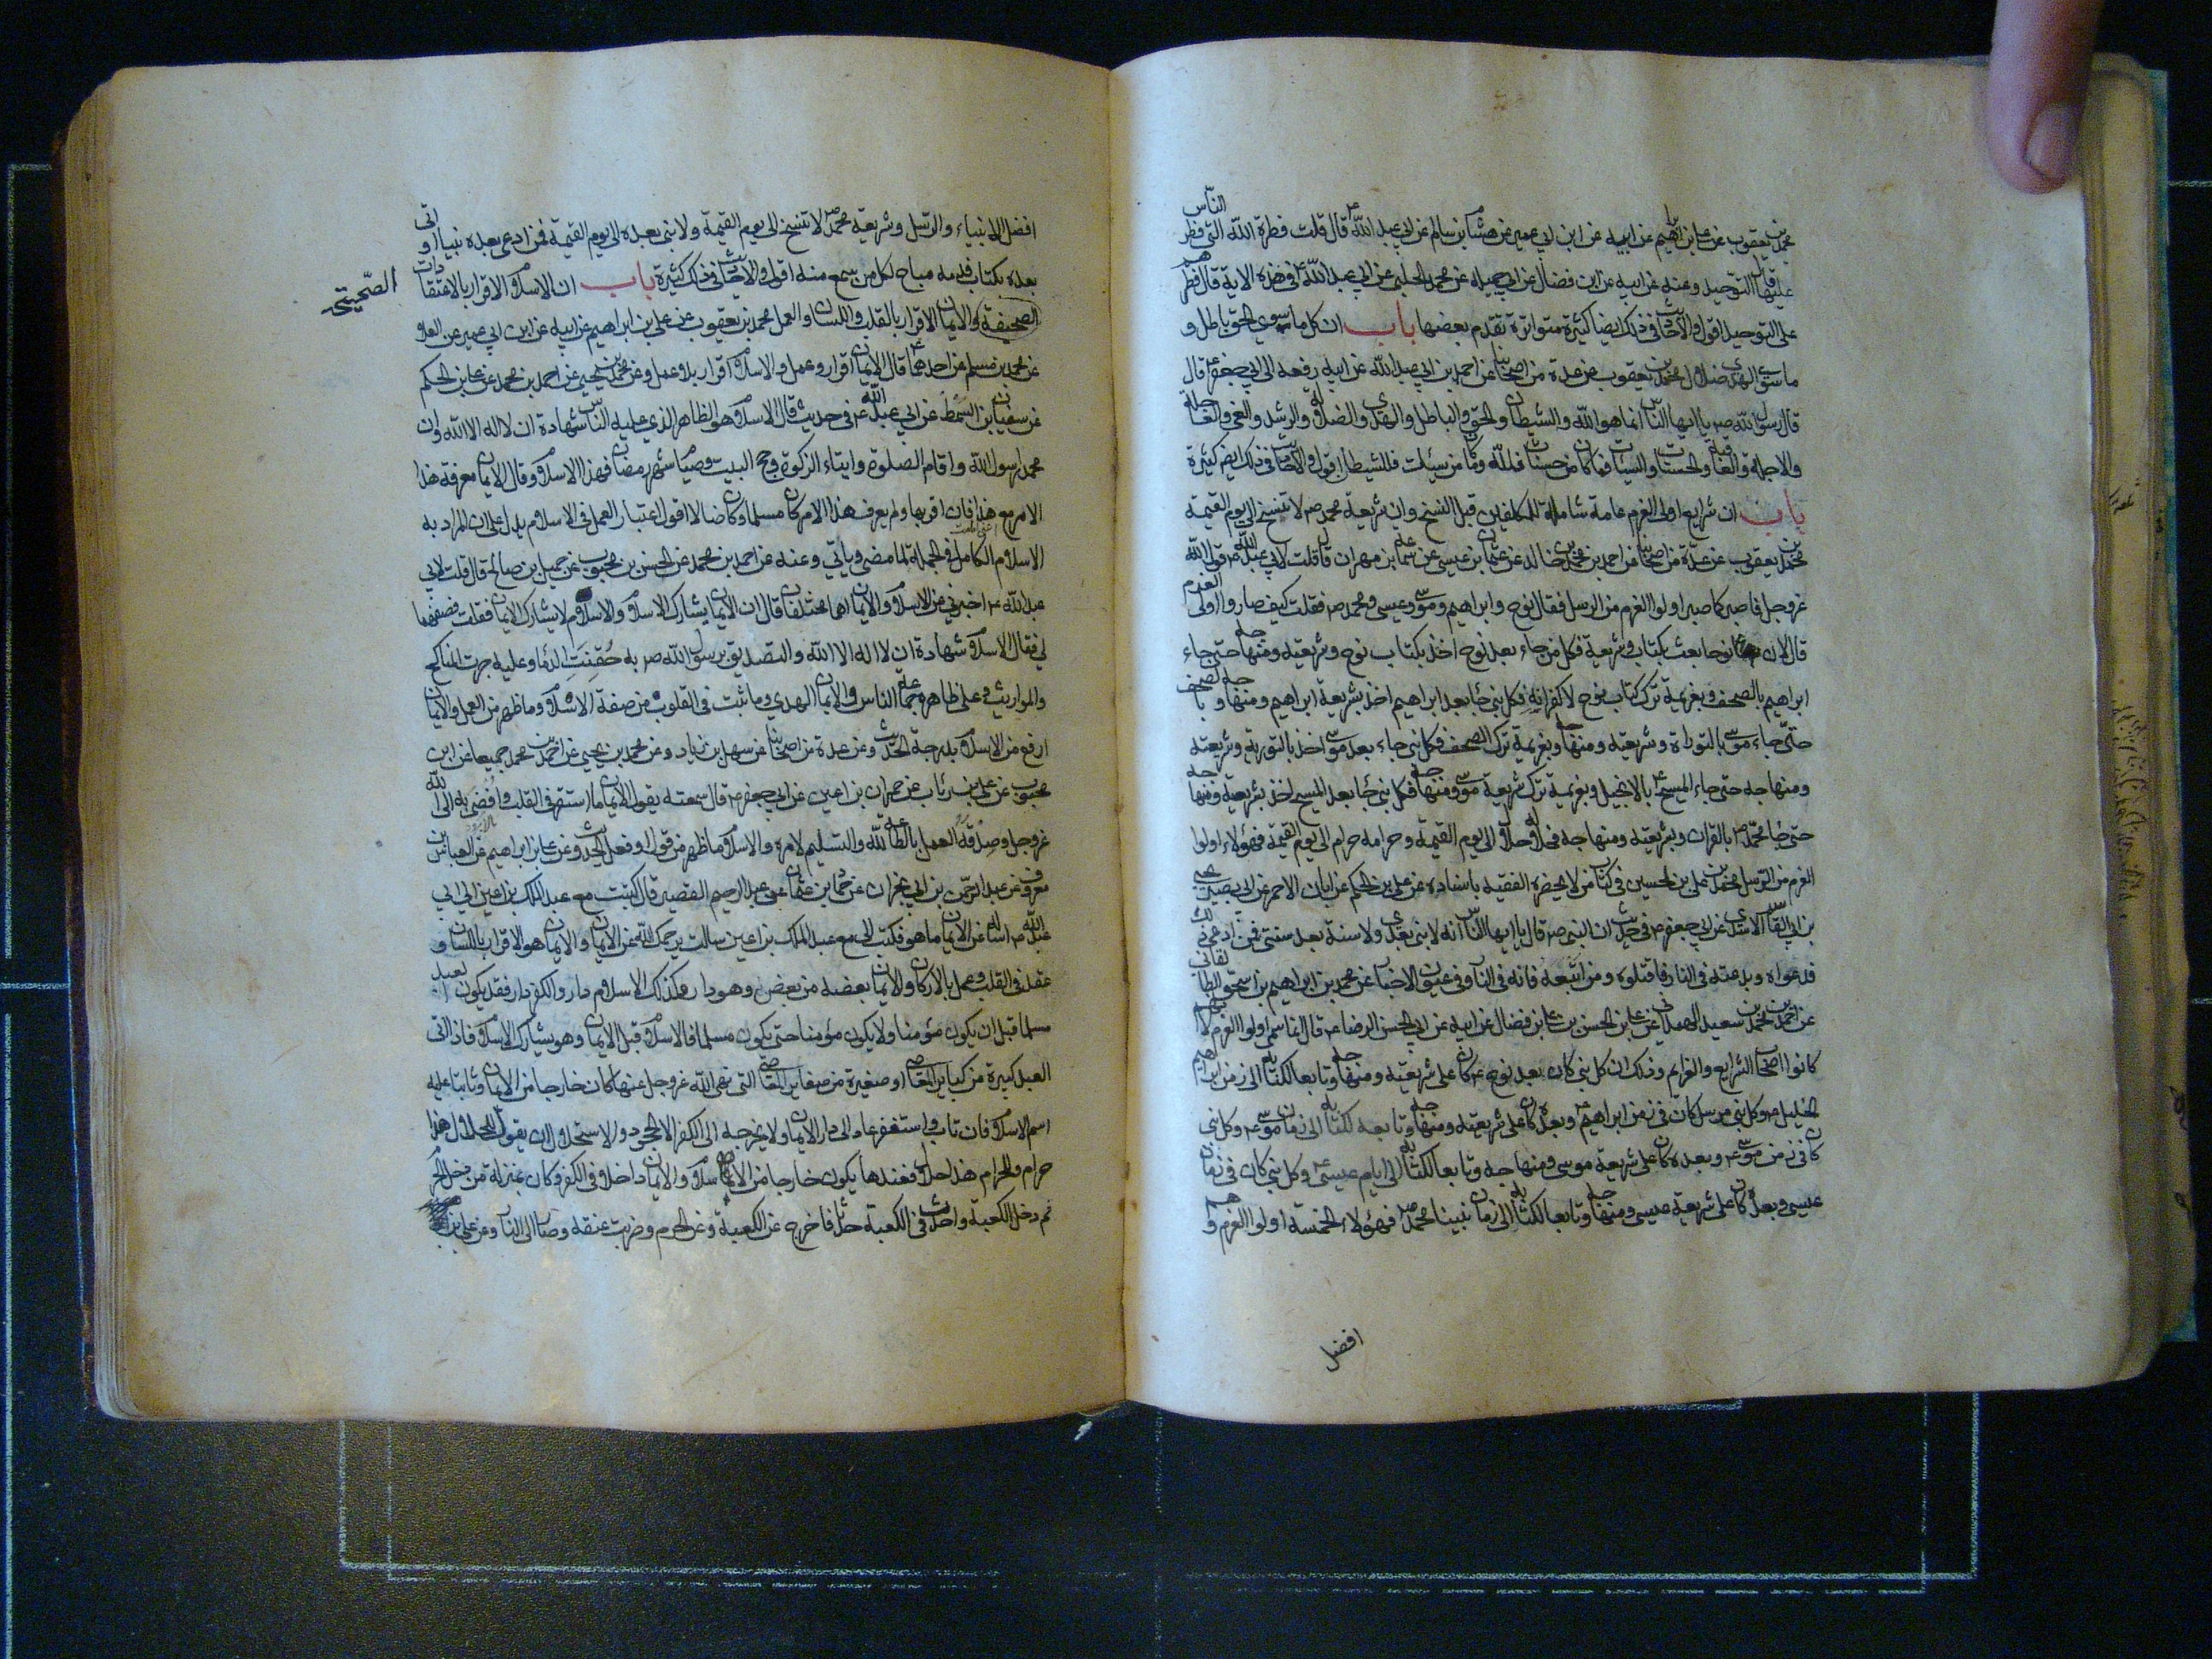 محمد بن يعقوب عن علي بن ابراهيم عن ابيه عن ابن ابي عمير عن هشام بن سالم عن ابي عبد الله ع قال قلت فطرة الله التي فطر الناس
عليها قال التوحيد وعنه عن ابيه عن ابن فضال عن ابي جميله عن محمد الحلبي عن ابي عبد الله ع في هذه الاية قال فطرهم
على التوحيد اقول والاحاديث في ذلك ايضا كثيرة متواترة تقدم بعضها باب ان كل ما سوى الحق باطل و
ما سوى الهدى ضلال محمد بن يعقوب عن عدة من اصحابنا عن احمد بن ابي عبد الله عن ابيه رفعه الى ابي جعفر ع قال
قال رسول الله ص يا ايها الناس انما هو الله والشيطان والحق والباطل والهدى والضلالة والرشد والغي والعاجلة
والاجلة والعاقبة والحسنات والسيات فما كان من حسنات فلله وما كان من سيئات فللشيطان اقول والاحاديث في ذلك ايضا كثيرة
باب ان شرايع اولي العزم عامة شاملة للمكلفين قبل النسخ وان شريعة محمد ص لا تنسخ الى يوم القيمة
محمد بن يعقوب عن عدة من اصحابنا عن احمد بن محمد بن خالد عن عثمان بن عيسى عن سماعة بن مهران قال قلت لابي عبد الله ع قول الله
عز وجل فاصبر كما صبر اولوا العزم من الرسل فقال نوح وابراهيم وموسى وعيسى ومحمد ص فقلت كيف صاروا اولي العزم
قال لان نوحا بعث بكتاب وشريعة فكل من جاء بعد نوح اخذ بكتاب نوح وشريعته ومنهاجه حتى جاء
ابراهيم بالصحف وبعزيمة ترك كتاب نوح لا كفرا به فكل نبي جاء بعد ابراهيم اخذ بشريعة ابراهيم ومنهاجه وبالصحف
حتى جاء موسى بالتوراة وشريعته ومنهاجه وبعزيمة ترك الصحف فكل نبي جاء بعد موسى اخذ بالتورية وشريعته
ومنهاجه حتى جاء المسيح ع بالانجيل وبعزيمة ترك شريعة موسى ومنهاجه فكل نبي جاء بعد المسيح اخذ بشريعته ومنهاجه
حتى جاء محمد ص بالقران وبشريعته ومنهاجه فحلاله حلال الى يوم القيمة وحرامه حرام الى يوم القيمة فهؤلاء اولوا
العزم من الرسل محمد بن علي بن الحسين في كتاب من لا يحضره الفقيه باسناده عن علي بن الحكم عن ابان الاحمر عن ابي بصير يحيى
بن ابي القاسم الاسدي عن ابي جعفر ع في حديث ان النبي ص قال يا ايها الناس انه لا نبي بعدي ولا سنة بعد سنتي فمن ادعى ذلك
فدعواه وبدعته في النار فاقتلوه ومن اتبعه فانه في النار وفي عيون الاخبار عن محمد بن ابراهيم بن اسحق الطالقاني
عن احمد بن محمد بن سعيد الهمداني عن علي بن الحسن بن علي بن فضال عن ابيه عن ابي الحسن الرضا ع قال انما سمي اولوا العزم لانهم
كانوا اصحاب الشرايع والعزايم وذلك ان كل نبي كان بعد نوح ع كان على شريعته ومنهاجه وتابعا لكتابه الى زمن ابراهيم
الخليل ع وكل نبي مرسل كان في زمن ابراهيم ع وبعده كان على شريعته ومنهاجه وتابعه لكتابه الى زمان موسى ع وكل نبي
كان في زمن موسى ع وبعده كان على شريعة موسى ومنهاجه وتابعا لكتابه الى ايام عيسى ع وكل نبي كان في زمان
عيسى وبعده كان على شريعة عيسى ومنهاجه وتابعا لكتابه الى زمان نبينا محمد ص فهؤلاء الخمسة اولوا العزم وهم
افضل
افضل الانبياء والرسل وشريعة محمد ص لا تنسخ الى يوم القيمة ولا نبي بعده الى يوم القيمة فمن ادعى بعده نبيا او اتى
بعده بكتاب فدمه مباح لكل من سمع منه اقول والاحاديث في ذلك كثيرة باب ان الاسلام الاقرار بالاعتقادات
الصحيحة
الصحيفة والايمان الاقرار بالقلب واللسان والعمل محمد بن يعقوب عن علي بن ابراهيم عن ابيه عن ابن ابي عمير عن العلا
عن محمد بن مسلم عن احدهما ع قال الايمان اقرار وعمل والاسلام اقرار بلا عمل وعن محمد بن يحيى عن احمد بن محمد عن علي بن الحكم
عن سفيان بن السمط عن ابي عبد الله ع في حديث قال الاسلام هو الظاهر الذي عليه الناس شهادة ان لا اله الا الله وان
محمدا رسول الله واقام الصلوة وايتاء الزكوة وحج البيت وصيام شهر رمضان فهذا الاسلام وقال الايمان معرفة هذا
الامر مع هذا فان اقر بها ولم يعرف هذا الامر كان مسلما وكان ضالا اقول اعتبار العمل في الاسلام يدل على ان المراد به
الاسلام الكامل في الجملة لما مضى وياتي وعنه عن احمد بن محمد عن الحسن بن محبوب عن جميل بن صالح قال قلت لابي
عبد الله ع اخبرني عن الاسلام والايمان اهما مختلفان قال ان الايمان يشارك الاسلام والاسلام لا يشارك الايمان فقلت فصفهما
لي فقال الاسلام شهادة ان لا اله الا الله والتصديق برسول الله ص به حُقِنَتِ الدماء وعليه جرت المناكح
والمواريث وعلى ظاهره جماعة الناس والايمان الهدي وما ثبت في القلوب من صفة الاسلام وما ظهر من العمل والايمان
ارفع من الاسلام بدرجة الحديث وعن عدة من اصحابنا عن سهل بن زياد وعن محمد بن يحيى عن احمد بن محمد جميعا عن ابن
محبوب عن علي بن رئاب عن حمران بن اعين عن ابي جعفر ع قال سمعته يقول الايمان ما استقر في القلب وافضى به الى الله
عز وجل وصدقه العمل بالطاعة لله والتسليم لامره والاسلام ما ظهر من قول او فعل الحديث وعن علي بن ابراهيم عن العباس بن
معروف عن عبد الرحمن بن ابي نجران عن حماد بن عثمان عن عبد الرحيم القصير قال كتبت مع عبد الملك بن اعين الى ابي
عبد الله ع اساله عن الايمان ما هو فكتب الي مع عبد الملك بن اعين سالت يرحمك الله عن الايمان والايمان هو الاقرار باللسان و
عقد في القلب وعمل بالاركان والايمان بعضه من بعض وهو دار وكذلك الاسلام دار والكفر دار فقد يكون العبد
مسلما قبل ان يكون مؤمنا ولا يكون مؤمنا حتى يكون مسلما فالاسلام قبل الايمان وهو يشارك الاسلام فاذا اتى
العبد كبيرة من كباير المعاصي او صغيرة من صغاير المعاصي التي نهى الله عز وجل عنها كان خارجا من الايمان وثابتا عليه
اسم الاسلام فان تاب واستغفر عاد الى دار الايمان ولا يخرجه الى الكفر الا الجحود والاستحلال ان يقول للحلال هذا
حرام وللحرام هذا حلال فعندها يكون خارجا من الاسلام والايمان داخلا في الكفر وكان بمنزلة من دخل الحرم
ثم دخل الكعبة واحدث في الكعبة حدثا فاخرج عن الكعبة وعن الحرم وضربت عنقه وصار الى النار وعن علي بن